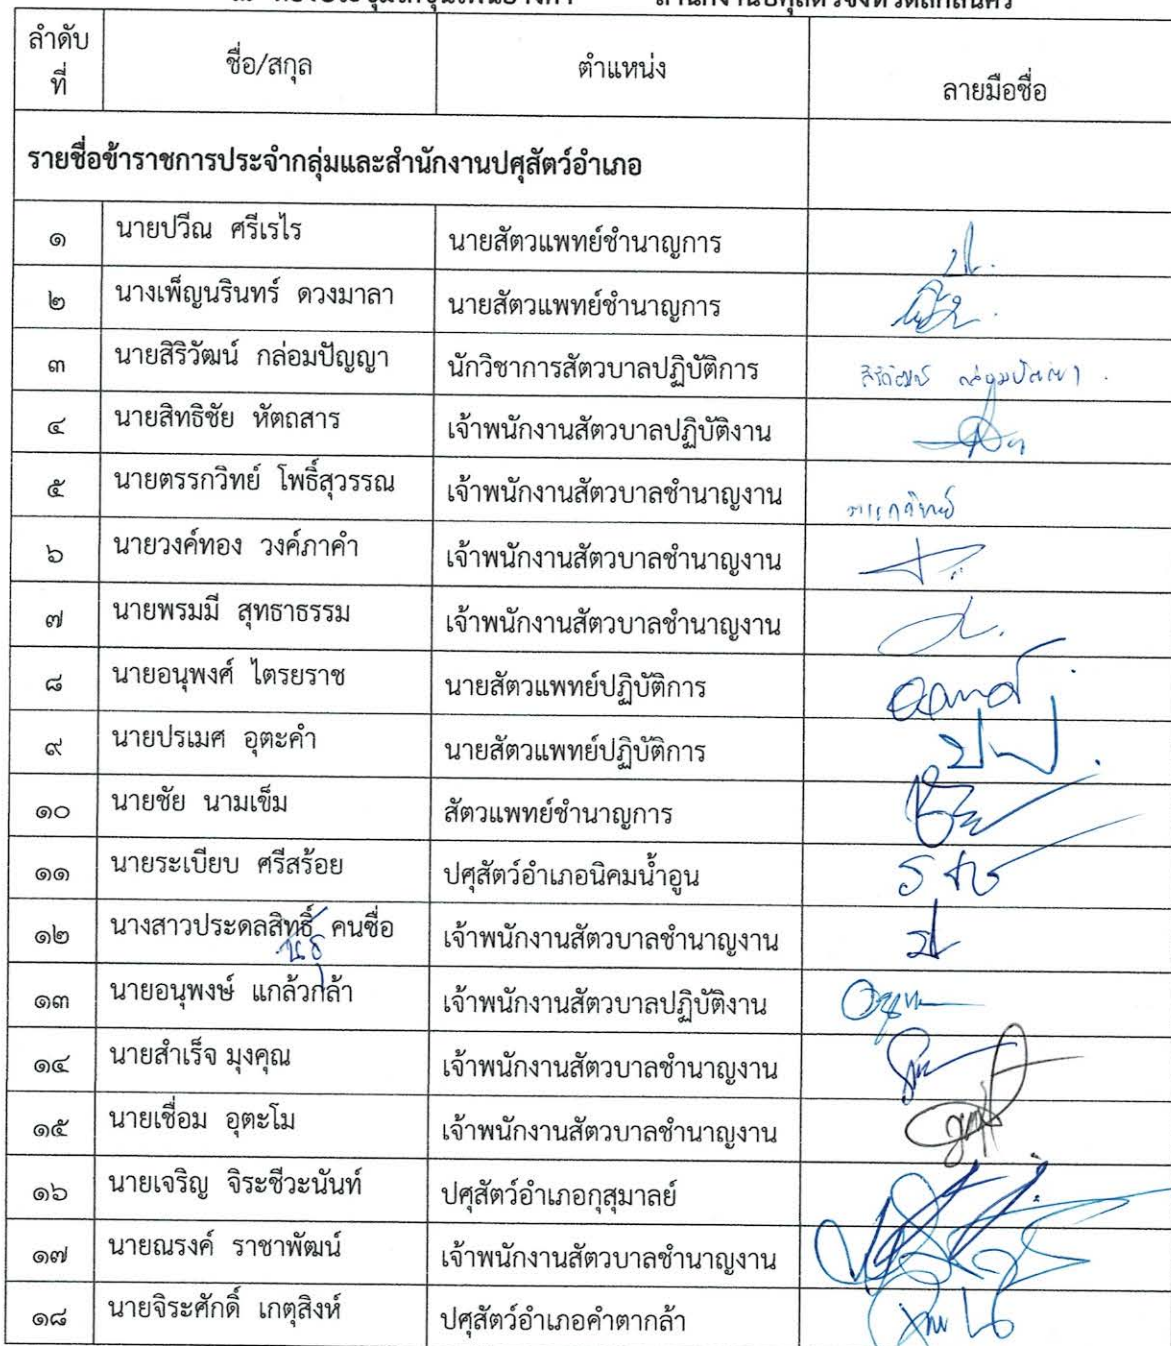 ลำดับที่ ชื่อ/สกุล ตำแหน่ง ลายมือชื่อ
รายชื่อข้าราชการประจำกลุ่มและสำนักงานปศุสัตว์อำเภอ
๑ นายปวีณ ศรีเรไร นายสัตวแพทย์ชำนาญการ
๒ นางเพ็ญนรินทร์ ดวงมาลา นายสัตวแพทย์ชำนาญการ
๓ นายสิริวัฒน์ กล่อมปัญญา นักวิชาการสัตวบาลปฏิบัติการ สิริวัฒน์ กล่อมปัญญา
๔ นายสิทธิชัย หัตถสาร เจ้าพนักงานสัตวบาลปฏิบัติงาน
๕ นายตรรกวิทย์ โพธิ์สุวรรณ เจ้าพนักงานสัตวบาลชำนาญงาน ตรรกวิทย์
๖ นายวงค์ทอง วงค์ภาคำ เจ้าพนักงานสัตวบาลชำนาญงาน
๗ นายพรมมี สุทธาธรรม เจ้าพนักงานสัตวบาลชำนาญงาน
๘ นายอนุพงศ์ ไตรยราช นายสัตวแพทย์ปฏิบัติการ
๙ นายปรเมศ อุตะคำ นายสัตวแพทย์ปฏิบัติการ
๑๐ นายชัย นามเข็ม สัตวแพทย์ชำนาญการ
๑๑ นายระเบียบ ศรีสร้อย ปศุสัตว์อำเภอนิคมน้ำอูน
๑๒ นางสาวประดลสิทธิ์ คนซื่อ เจ้าพนักงานสัตวบาลชำนาญงาน
๑๓ นายอนุพงษ์ แกล้วกล้า เจ้าพนักงานสัตวบาลปฏิบัติงาน
๑๔ นายสำเร็จ มุงคุณ เจ้าพนักงานสัตวบาลชำนาญงาน
๑๕ นายเชื่อม อุตะโม เจ้าพนักงานสัตวบาลชำนาญงาน
๑๖ นายเจริญ จิระชีวะนันท์ ปศุสัตว์อำเภอกุสุมาลย์
๑๗ นายณรงค์ ราชาพัฒน์ เจ้าพนักงานสัตวบาลชำนาญงาน
๑๘ นายจิระศักดิ์ เกตุสิงห์ ปศุสัตว์อำเภอคำตากล้า